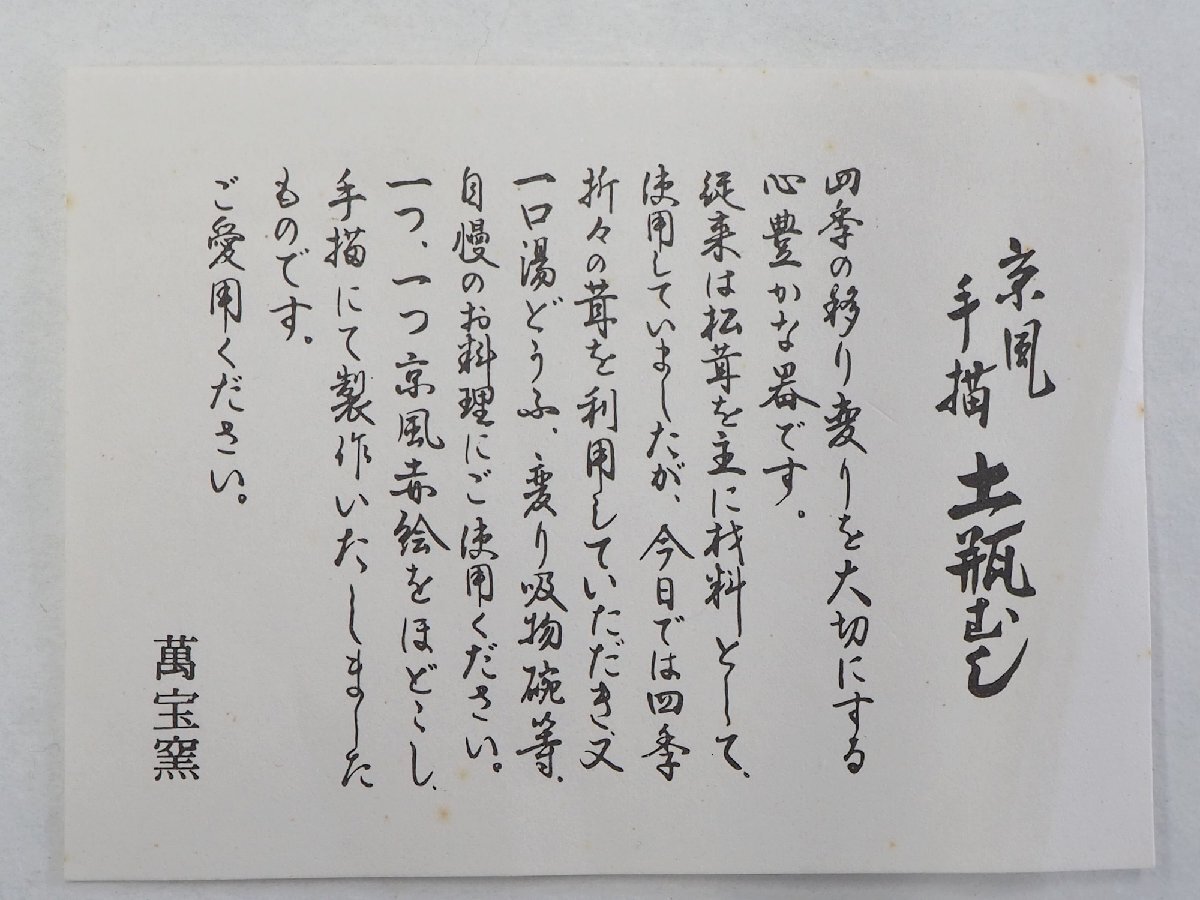 京風
手描
土瓶むし
四季の移り変りを大切にする
心豊かな器です。
従来は松茸を主に材料として、
使用していましたが、今日では四季
折々の茸を利用していただき、又
一口湯どうふ、変り吸物碗等、
自慢のお料理にご使用ください。
一つ、一つ京風赤絵をほどこし、
手描にて製作いたしました
ものです。
ご愛用ください。
萬宝窯